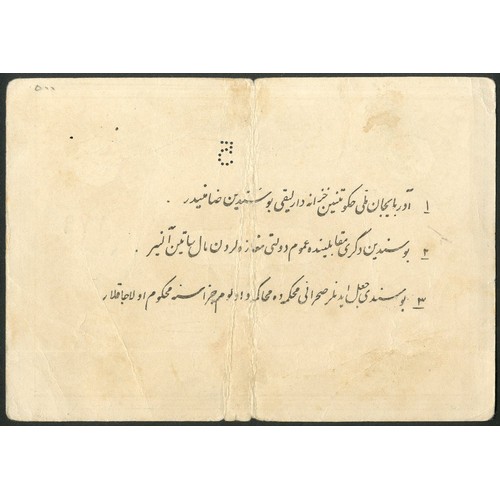 ۵۰۰
5
۱ آذربایجان ملی حکومتینین خزانه دارلیقی بو سندین ضامنیدر .
۲ بو سندین دگری مقابلینده عموم دولتی مغازه لردن مال ساتین آلنیر .
۳ بو سندی جعل ایدنلر صحرائی محکمه ده محاکمه و اولوم جزاسنه محکوم اولاجاقلار